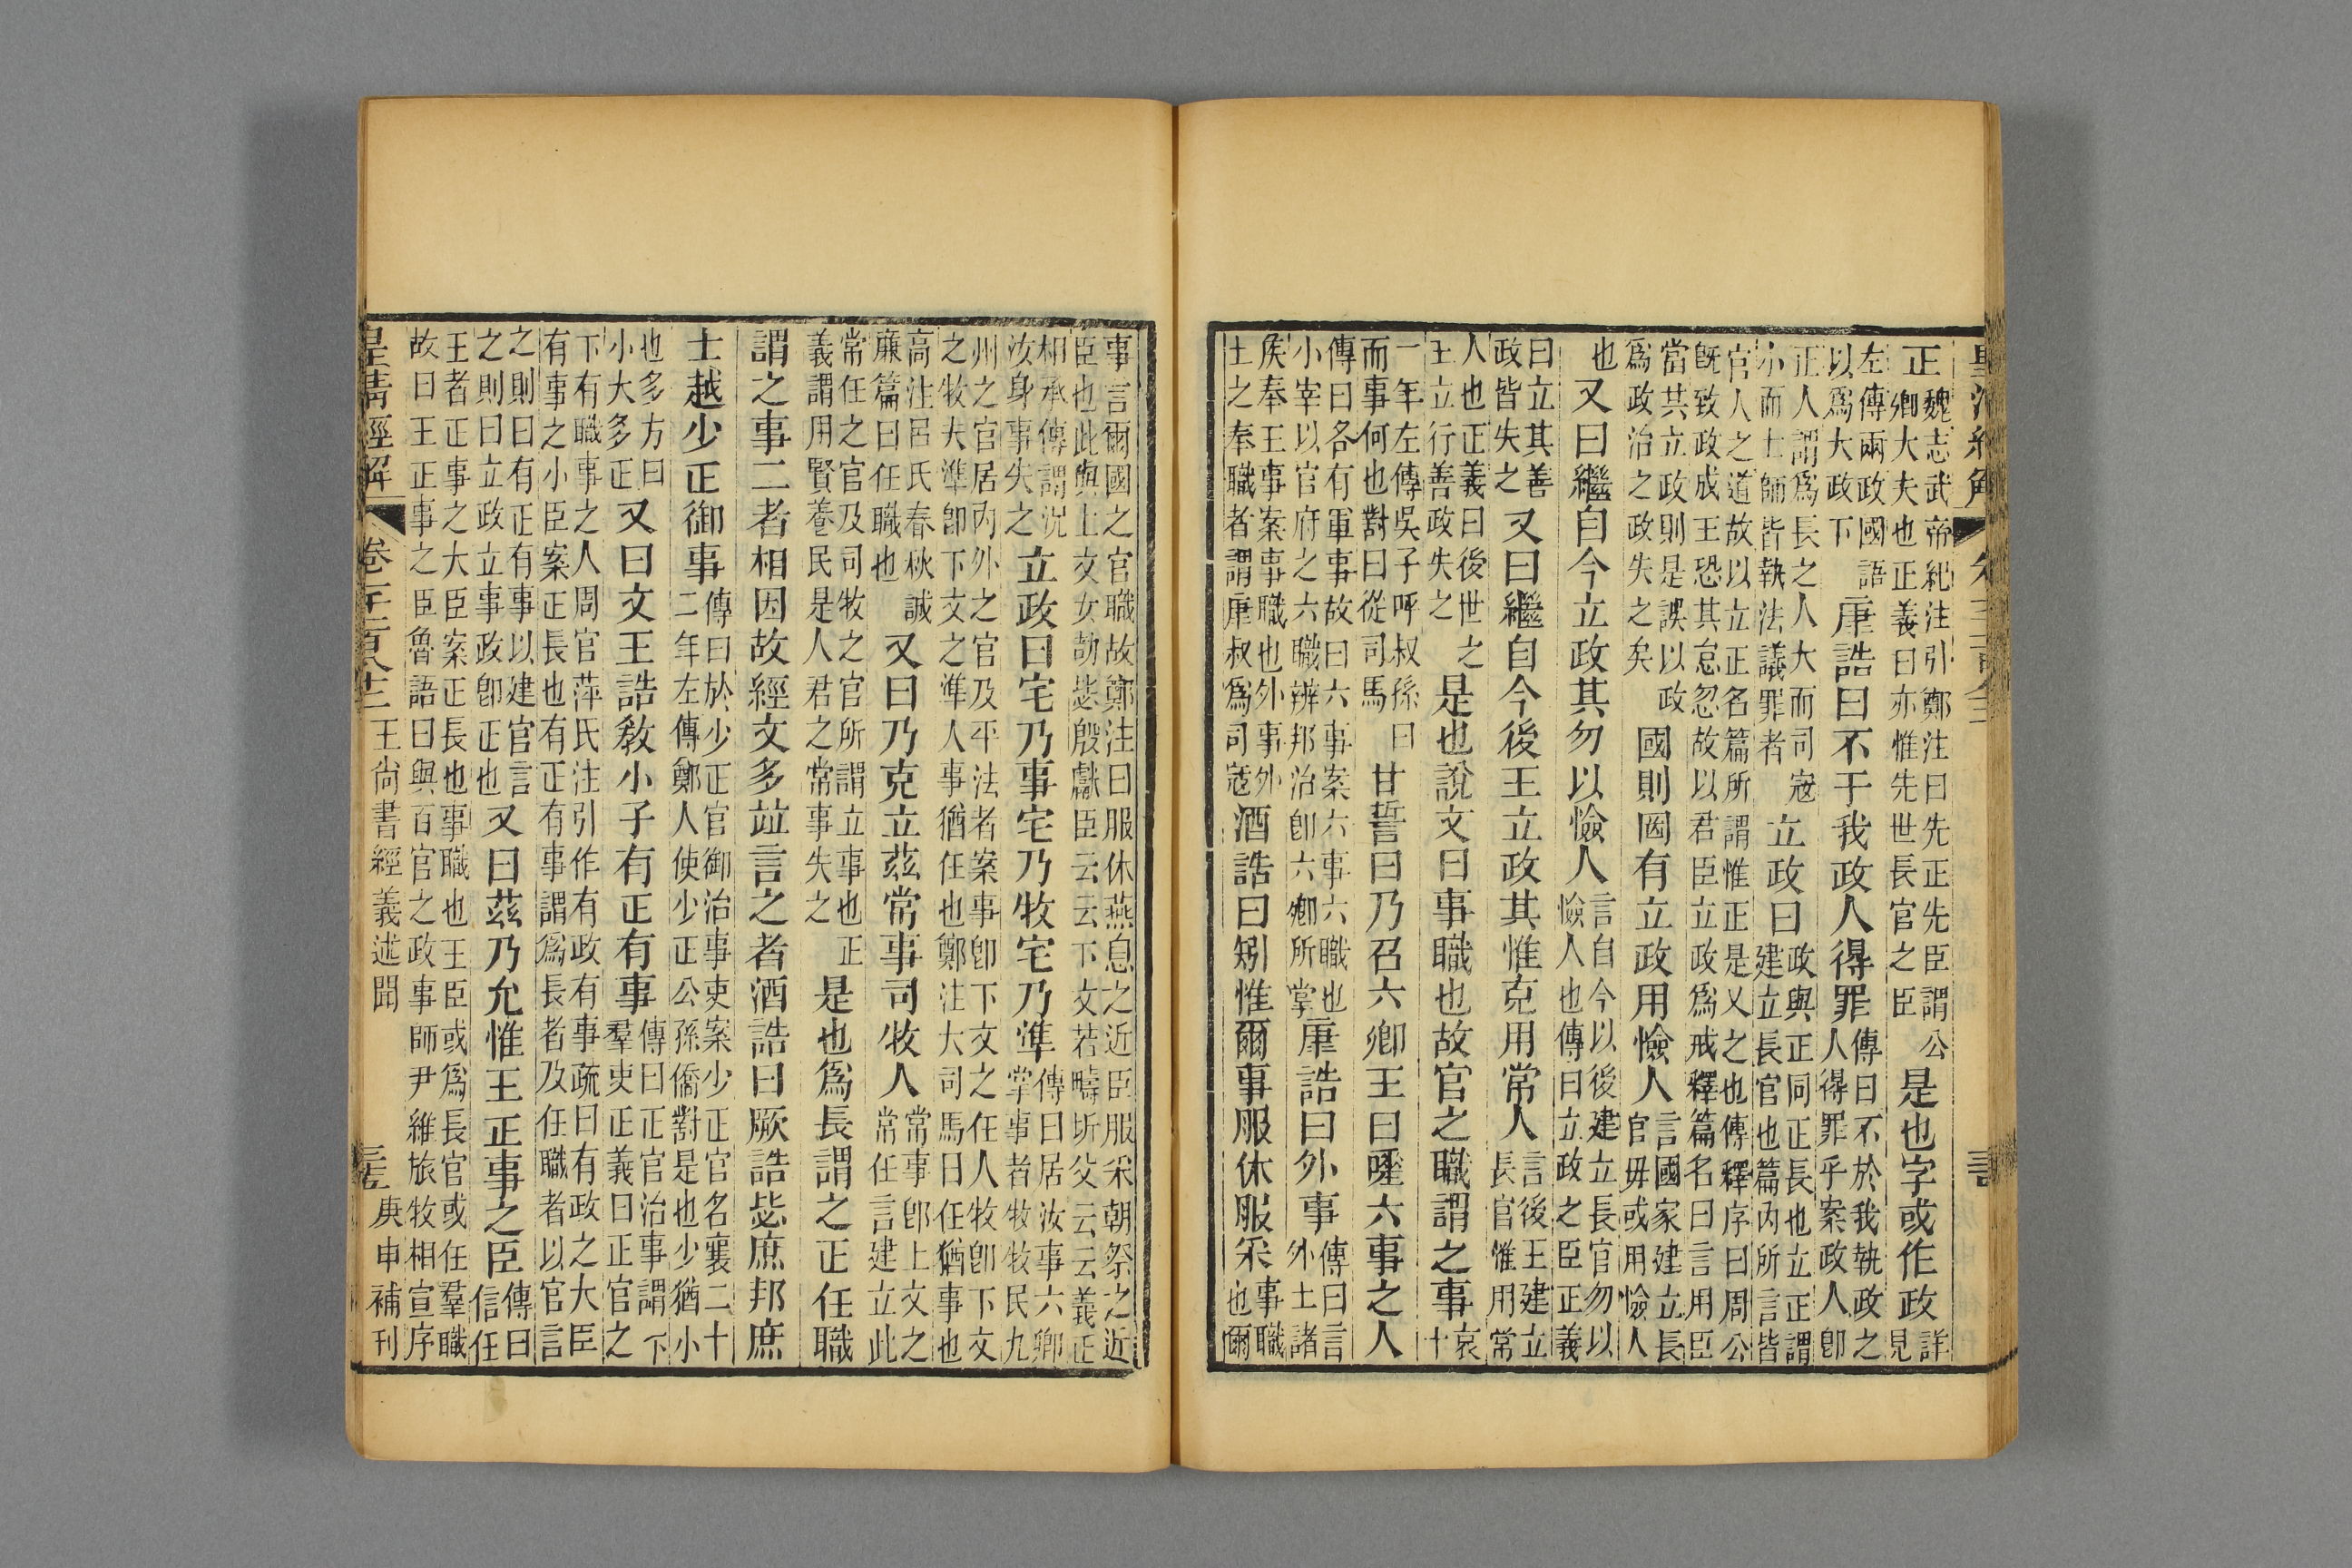 皇清經解
正魏志武帝紀注引鄭注曰先正先臣謂公卿大夫也正義曰亦惟先世長官之臣是也字或作政詳見
左傳兩政國語以爲大政下康誥曰不于我政人得罪傳曰不於我執政之人得罪乎案政人卽
正人謂爲長之人大而司寇小而士師皆執法議罪者立政曰政與正同正長也立正謂建立長官也篇內所言皆
官人之道故以立正名篇所謂惟正是乂之也傳釋序曰周公旣致政成王恐其怠忽故以君臣立政爲戒釋篇名曰言用臣
當共立政則是誤以政爲政治之政失之矣國則罔有立政用憸人言國家建立長官毋或用憸人
也又曰繼自今立政其勿以憸人言自今以後建立長官勿以憸人也傳曰立政之臣正義
曰立其善政皆失之又曰繼自今後王立政其惟克用常人言後王建立長官惟用常
人也正義曰後世之王立行善政失之是也說文曰事職也故官之職謂之事哀十
一年左傳吳子呼叔孫曰而事何也對曰從司馬甘誓曰乃召六卿王曰嗟六事之人
傳曰各有軍事故曰六事案六事六職也小宰以官府之六職辨邦治卽六卿所掌康誥曰外事傳曰言外土諸
侯奉王事案事職也外事外土之奉職者謂康叔爲司寇酒誥曰矧惟爾事服休服采事職也爾
事言爾國之官職故鄭注曰服休燕息之近臣服采朝祭之近臣也此與上文女劼毖殷獻臣云云下文若疇圻父云云義正
相承傳謂況汝身事失之立政曰宅乃事宅乃牧宅乃準傳曰居汝事六卿掌事者牧牧民九
州之官居內外之官及平法者案事卽下文之任人牧卽下文之牧夫準卽下文之準人事猶任也鄭注大司馬曰任猶事也
高注呂氏春秋誠廉篇曰任職也又曰乃克立茲常事司牧人常事卽上文之常任言建立此
常任之官及司牧之官所謂立事也正義謂用賢養民是人君之常事失之是也爲長謂之正任職
謂之事二者相因故經文多竝言之者酒誥曰厥誥毖庶邦庶
士越少正御事傳曰於少正官御治事吏案少正官名襄二十二年左傳鄭人使少正公孫僑對是也少猶小
也多方曰小大多正又曰文王誥敎小子有正有事傳曰正官治事謂下羣吏正義曰正官之
下有職事之人周官萍氏注引作有政有事疏曰有政之大臣有事之小臣案正長也有正有事謂爲長者及任職者以官言
之則曰有正有事以建官言之則曰立政立事政卽正也又曰茲乃允惟王正事之臣傳曰信任
王者正事之大臣案正長也事職也王臣或爲長官或任羣職故曰王正事之臣魯語曰與百官之政事師尹維旅牧相宣序
皇清經解 卷 王尙書經義述聞 庚申補刊